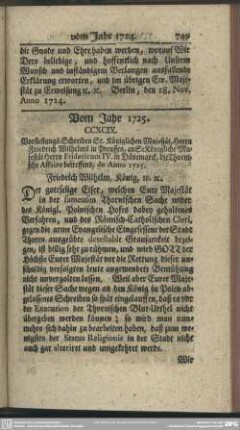 vom Jahr 1724. 749
die Gnade und Ehre haben werden, worauf Wir
Dero beliebige, und hoffentlich nach Unserm
Wunsch und inständigem Verlangen ausfallende
Erklärung erwarten, und im übrigen Ew. Maje-
stät zu Erweisung ꝛc. ꝛc. Berlin, den 28. Nov.
Anno 1724.
Vom Jahr 1725.
CCXCIX.
Vorstellungs-Schreiben Sr. Königlichen Majestät, Herrn
Friedrich Wilhelms in Preussen, an Se Königliche Ma-
jestät Herrn Fridericum IV. in Dänemarck, die Thorni-
sche Affaire betreffend, de Anno 1725.
Friedrich Wilhelm, König, ꝛc. ꝛc.
Der gottselige Eifer, welchen Eure Majestät
in der fameusen Thornischen Sache wider
des Königl. Polnischen Hofes dabey gehaltenes
Verfahren, und der Römisch-Catholischen Clerisey
gegen die arme Evangelische Eingesessene der Stadt
Thoren ausgeübte Grausamkeit bezei-
gen, ist billig sehr zu rühmen, und wird GOTT der
Höchste Eurer Majestät vor die Rettung dieser un-
schuldig verfolgten Leute angewendete Bemühung
nicht unvergolten lassen. Weil aber Eurer Maje-
stät dieser Sache wegen an den König in Polen ab-
gelassenes Schreiben so spät eingelauffen, daß es vor
der Execution der Thornischen Blut-Urthel nicht
übergeben werden können; so wird man nun-
mehro sich dahin zu bearbeiten haben, daß zum we-
nigsten der Status Religionis in der Stadt nicht
auch gar alteriret und umgekehret werde.
Wir